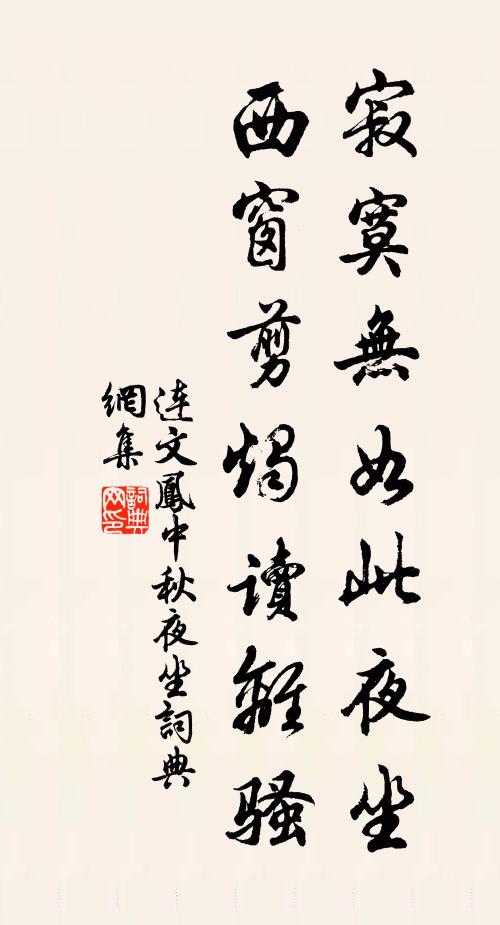 寂寞無如此夜坐
西窗剪燭讀離騷
连文鳳中秋夜坐詞典
網集
詞典
网印